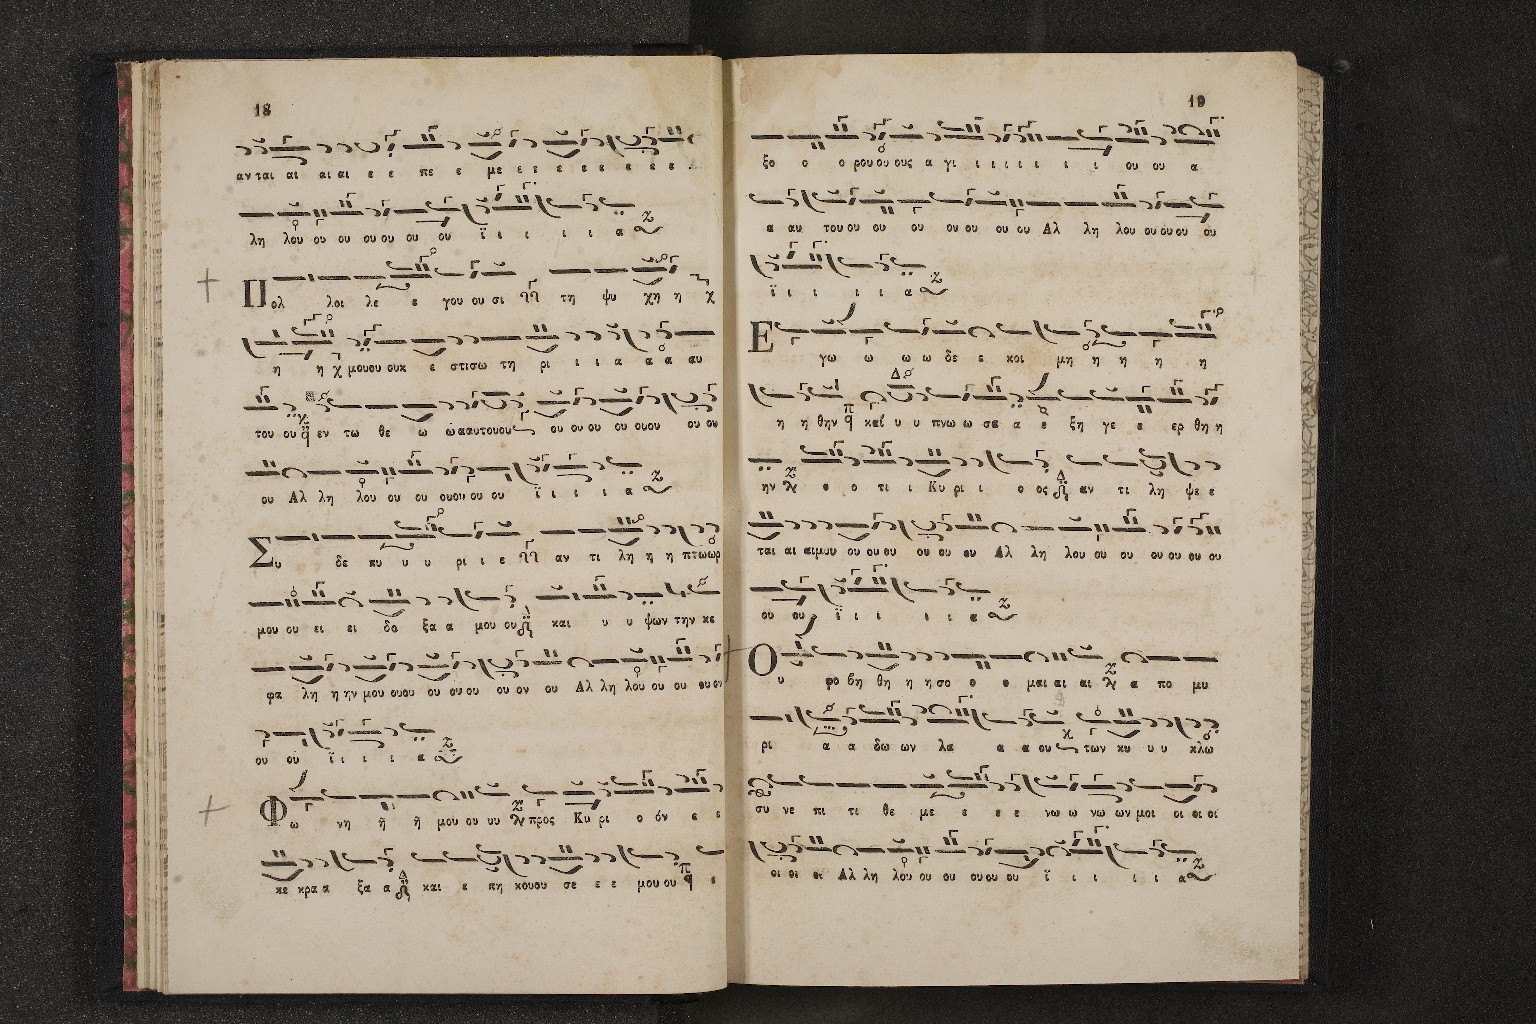 18
αν ται αι αι αι ε ε πε ε με ε ε ε ε ε ε ε ε
λη λου ου ου ου ου ου ου ϊ ι ι ι ι α
Πολ λοι λε ε γου ου σι τη ψυ χη η
η η μουου ουκ ε στισω τη ρι ι ι α α α αυ
του ου εν τω θε ω ωααυτουου ου ου ου ου ουου ου ου
ου Αλ λη λου ου ου ουου ου ου ϊ ι ι ι α
Συ δε κυ υ υ ρι ι ε αν τι λη η η πτωωρ
μου ου ει ει δο ξα α μου ου και υ υ ψων την κε
φα λη η ην μου ουου ου ου ου ου ου ου Αλ λη λου ου ου ου ου
ου ου ϊ ι ι ι α
Φω νη ῆ ῆ μου ου υυ προς Κυ ρι ο όν ε ε
κε κρα α ξα α και ε πη κουου σε ε ε μου ου ε
19
ξο ο ο ρου ου ους α γι ι ι ι ι ι ι ι ου ου α
α αυ του ου ου ου ου ου ου ου Αλ λη λου ου ου ου ου
ϊ ι ι ι ι α
Εγω ω ω ω δε ε κοι μη η η η η
η η θην και υ υ πνω ω σα α ε ξη γε ε ερ θη η
ην ο ο τι ι Κυ ρι ι ο ος αν τι λη ψε ε
ται αι αιμυυ ου ου ου ου ου ου Αλ λη λου ου ου ου ου ου ου
ου ου ϊ ι ι ι ι α
Ου φο βη θη η η σο ο ο μαι αι αι α πο μυ
ρι α α δω ων λα α α ου των κυ υ υ κλω
συ νε πι τι θε με ε ε ε νω ω νω ων μοι οι οι οι
οι οι οι Αλ λη λου ου ου ου ου ου ϊ ι ι ι ι α